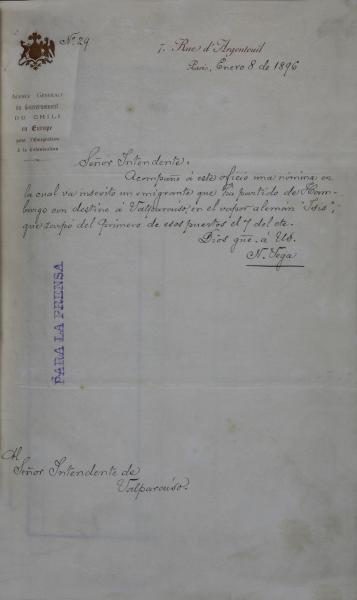 Nº 29
7, Rue d'Argenteuil
Paris, Enero 8 de 1896
AGENCE GÉNÉRALE
du Gouvernement
DU CHILI
en Europe
pour l'Émigration
& la Colonisation
Señor Intendente:
Acompaño á este oficio una nómina en
la cual va inscrito un emigrante que ha partido de Ham-
burgo con destino á Valparaíso, en el vapor alemán "Isis",
que zarpó del primero de esos puertos el 7 del cte.
Dios gue. á US.
N. Vega
PARA LA PRENSA
Al
Señor Intendente de
Valparaíso.